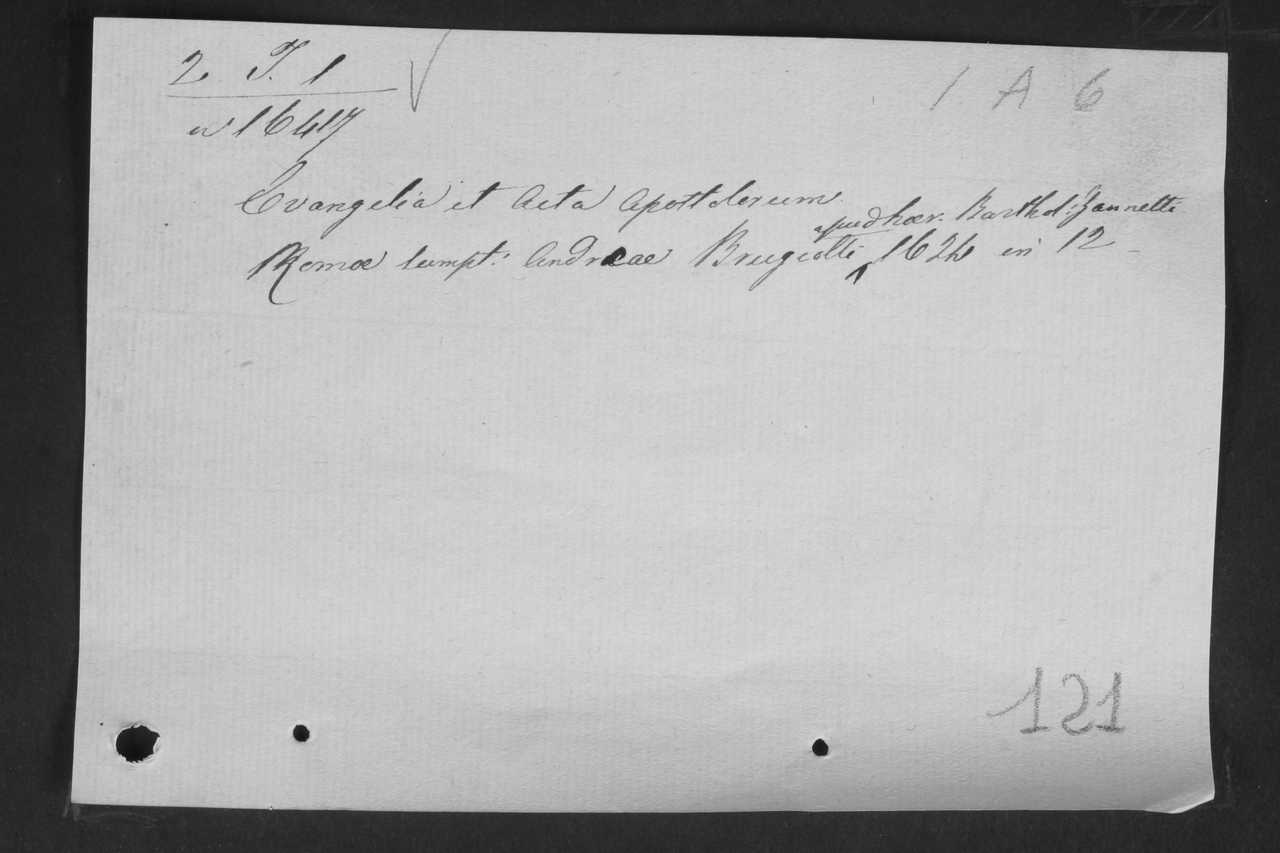 2 T. 1
1 A 6
n 16417
Evangelia et Acta Apostolorum
apud hær. Barthol: Zannetti
Romæ sumpt: Andreae Brugiotti 1624 in 12
121